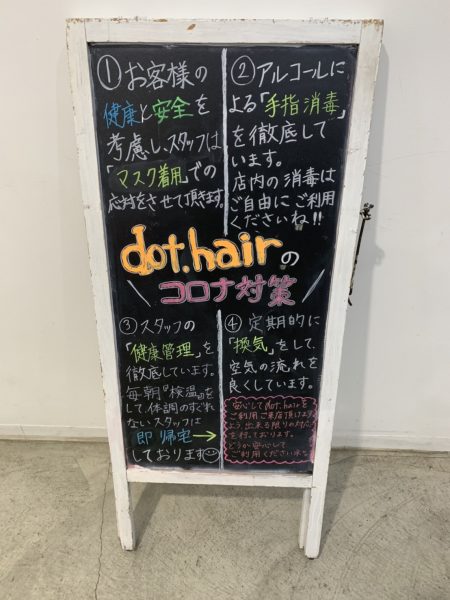 ①お客様の
健康と安全を
考慮し、スタッフは
「マスク着用」での
応対をさせて頂きます。
②アルコールに
よる「手指消毒」
を徹底して
います。
店内の消毒は
ご自由にご利用
くださいね!!
dot.hairの
コロナ対策
③スタッフの
「健康管理」を
徹底しています。
毎朝『検温』を
して体調のすぐれ
ないスタッフは
即帰宅→
しております
④定期的に
「換気」をして、
空気の流れを
良くしています。
安心してdot.hairを
ご利用ご来店頂けます
よう、出来る限りの対応
を行っております。
どうか安心して
ご利用ください